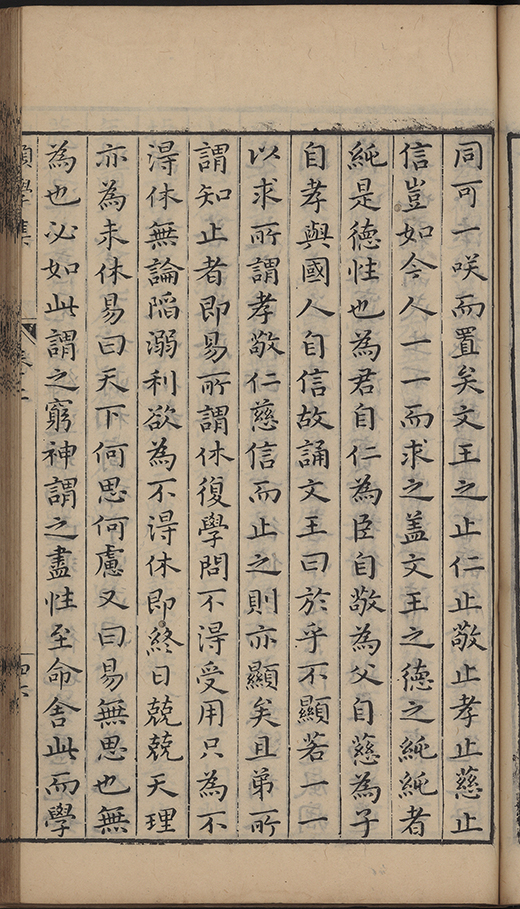 同可一咲而置矣文王之止仁止敬止孝止慈止
信豈如今人一一而求之盖文王之德之純純者
純是德性也為君自仁為臣自敬為父自慈為子
自孝與國人自信故誦文王曰於乎不顯若一一
以求所謂孝敬仁慈信而止之則亦顯矣且弟所
謂知止者即易所謂休復學問不得受用只為不
得休無論陷溺利欲為不得休即終日兢兢天理
亦為未休易曰天下何思何慮又曰易無思也無
為也必如此謂之窮神謂之盡性至命舍此而學
學集